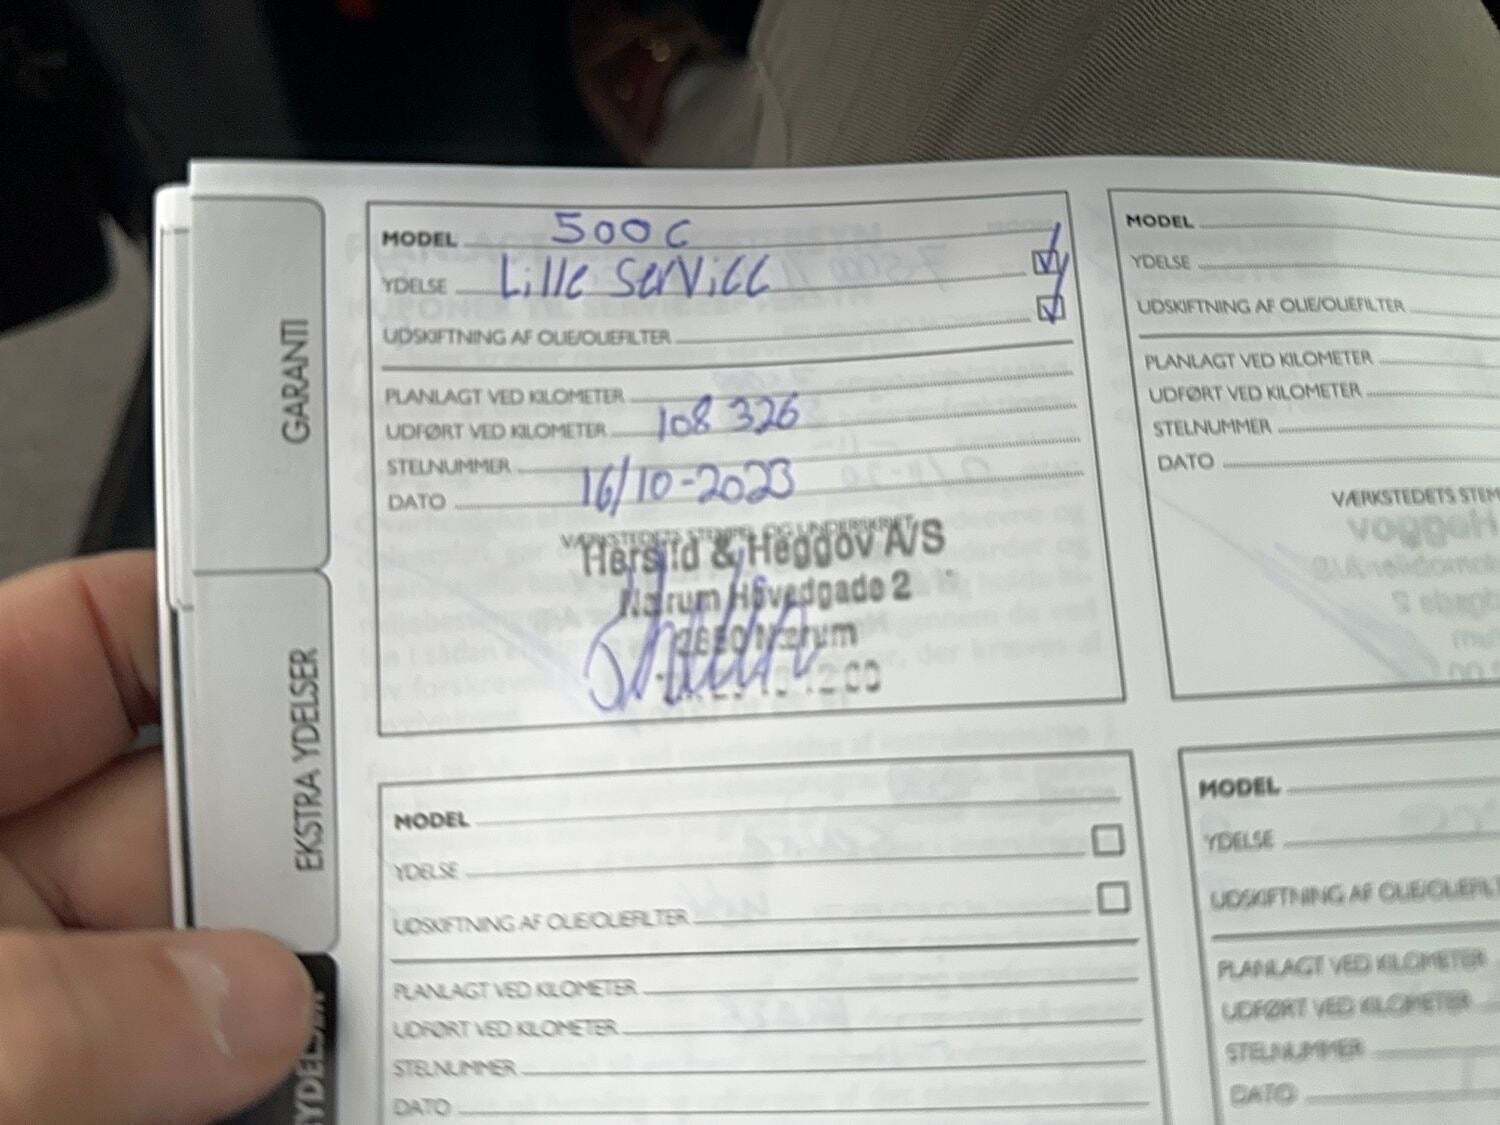 GARANTI
EKSTRA YDELSER
YDELSER
MODEL 500 C
YDELSE Lille service
UDSKIFTNING AF OLIE/OLIEFILTER
PLANLAGT VED KILOMETER
UDFØRT VED KILOMETER 108 326
STELNUMMER
DATO 16/10-2023
VÆRKSTEDETS STEMPEL OG UNDERSKRIFT
Hersild & Heggov A/S
Nærum Hovedgade 2
2850 Nærum
MODEL
YDELSE
UDSKIFTNING AF OLIE/OLIEFILTER
PLANLAGT VED KILOMETER
UDFØRT VED KILOMETER
STELNUMMER
DATO
VÆRKSTEDETS STEM
MODEL
YDELSE
UDSKIFTNING AF OLIE/OLIEFILTER
PLANLAGT VED KILOMETER
UDFØRT VED KILOMETER
STELNUMMER
DATO
MODEL
YDELSE
UDSKIFTNING AF OLIE/OLIEFILT
PLANLAGT VED KILOMETER
UDFØRT VED KILOMETER
STELNUMMER
DATO